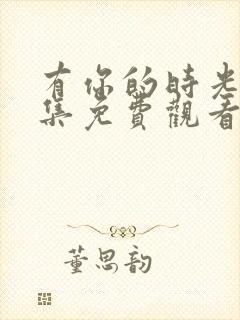 有你的时光
集免費觀看
董思韵